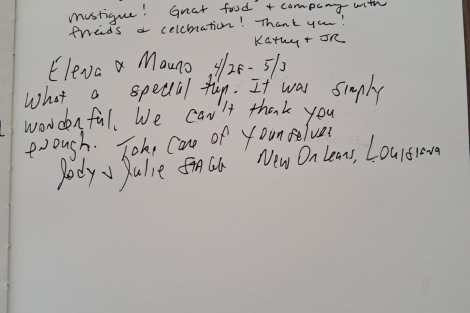 Mustique! Great food + company with
friends & celebration! Thank you!
Kathy + JR
Elena & Mauro 4/28 - 5/3
What a special trip. It was simply
wonderful. We can't thank you
enough. Take care of yourselves
Jody & Julie Stagg New Orleans, Louisiana